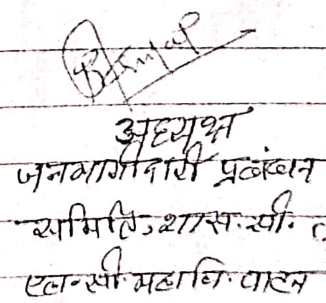 अध्यक्ष
जनभागीदारी प्रबंधन
समिति, शास. सी.
एल. सी. महावि. पाटन